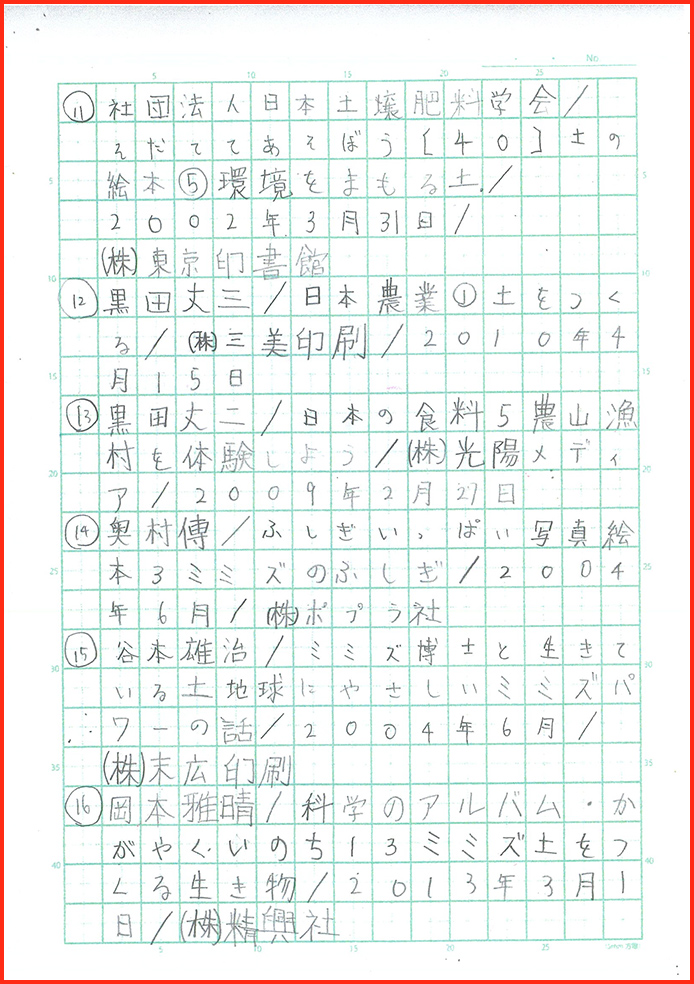 No
5 10 15 20 25
⑪社団法人日本土壌肥料学会/
そだててあそぼう[40]土の
絵本⑤環境をまもる土/
2002年3月31日/
(株)東京印書館
⑫黒田丈三/日本農業①土をつく
る/(株)三美印刷/2010年4
月15日
⑬黒田丈二/日本の食料5農山漁
村を体験しよう/(株)光陽メディ
ア/2009年2月27日
⑭奥村傳/ふしぎいっぱい写真絵
本3ミミズのふしぎ/2004
年6月/(株)ポプラ社
⑮谷本雄治/ミミズ博士と生きて
いる土地球にやさしいミミズパ
ワーの話/2004年6月/
(株)末広印刷
⑯岡本雅晴/科学のアルバム・か
がやくいのち13ミミズ土をつ
くる生き物/2013年3月1
日/(株)精興社
5 10 15 20 25